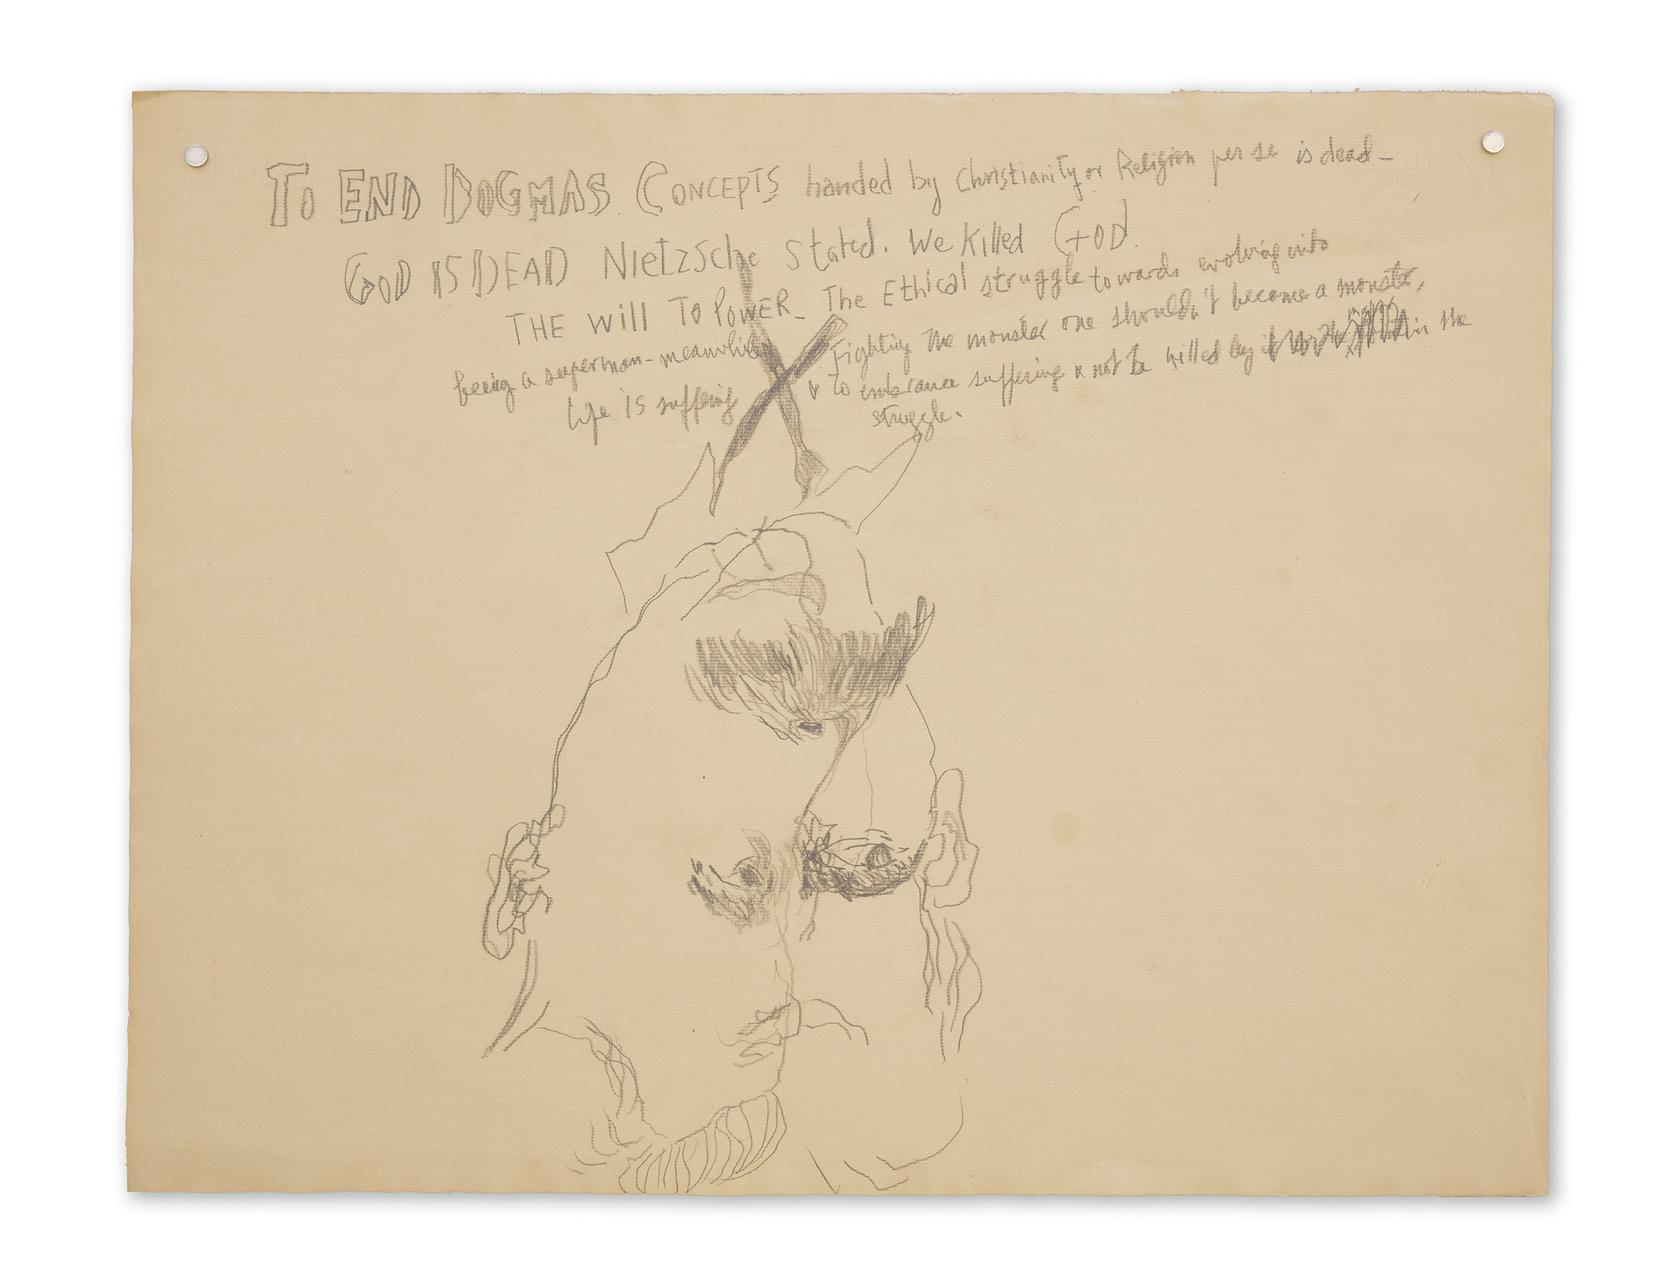 To END DOGMAS CONCEPTS handed by Christianity or Religion per se is dead-
GOD IS DEAD NIETZSChe stated. We Killed GOD.
THE Will TO POWER_ The Ethical struggle towards evolving into
being a superman - meanwhile Fighting the monster one shouldn't become a monster,
life is suffering & to embrance suffering & not be killed by it in the
struggle.